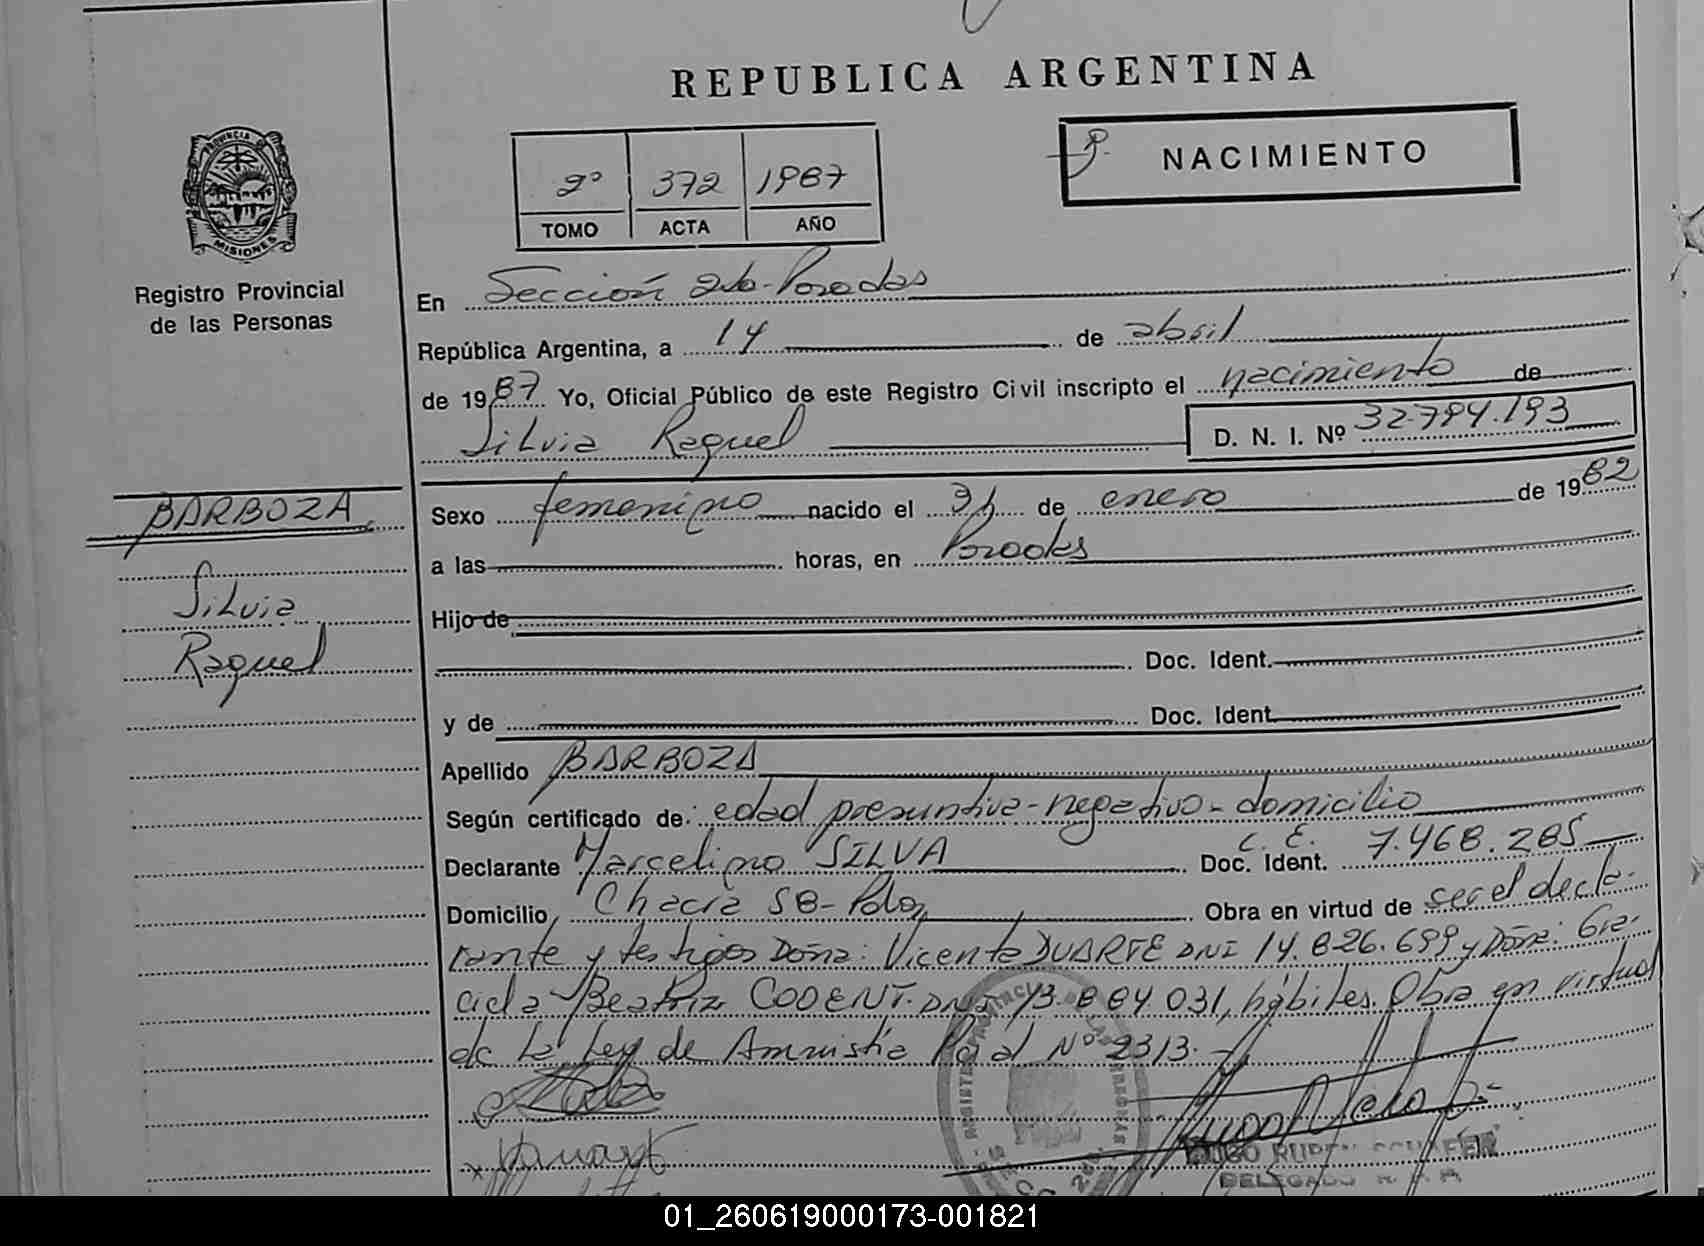 REPUBLICA ARGENTINA
PROVINCIA DE
MISIONES
Registro Provincial
de las Personas
2º 372 1987
TOMO ACTA AÑO
NACIMIENTO
En Sección 2da. Posadas
República Argentina, a 14 de abril
de 1987 Yo, Oficial Público de este Registro Civil inscripto el nacimiento de
Silvia Raquel D. N. I. Nº 32.794.193
BARBOZA
Silvia
Raquel
Sexo femenino nacido el 31 de enero de 1982
a las horas, en Posadas
Hijo de
Doc. Ident.
y de Doc. Ident.
Apellido BARBOZA
Según certificado de: edad presuntiva-negativo-domicilio
Declarante Marcelino SILVA Doc. Ident. C. E. 7.468.285
Domicilio Chacra 58-Pdas Obra en virtud de ser el decla-
rante y testigos Doña: Vicenta DUARTE DNI 14.826.699 y Doña: Gra-
ciela Beatriz CODENT. DNI 13.884.031, hábiles. Obra en virtud
de la Ley de Amnistía Pcial Nº 2313.-
HUGO RUBEN SCHAFER
DELEGADO
01_260619000173-001821